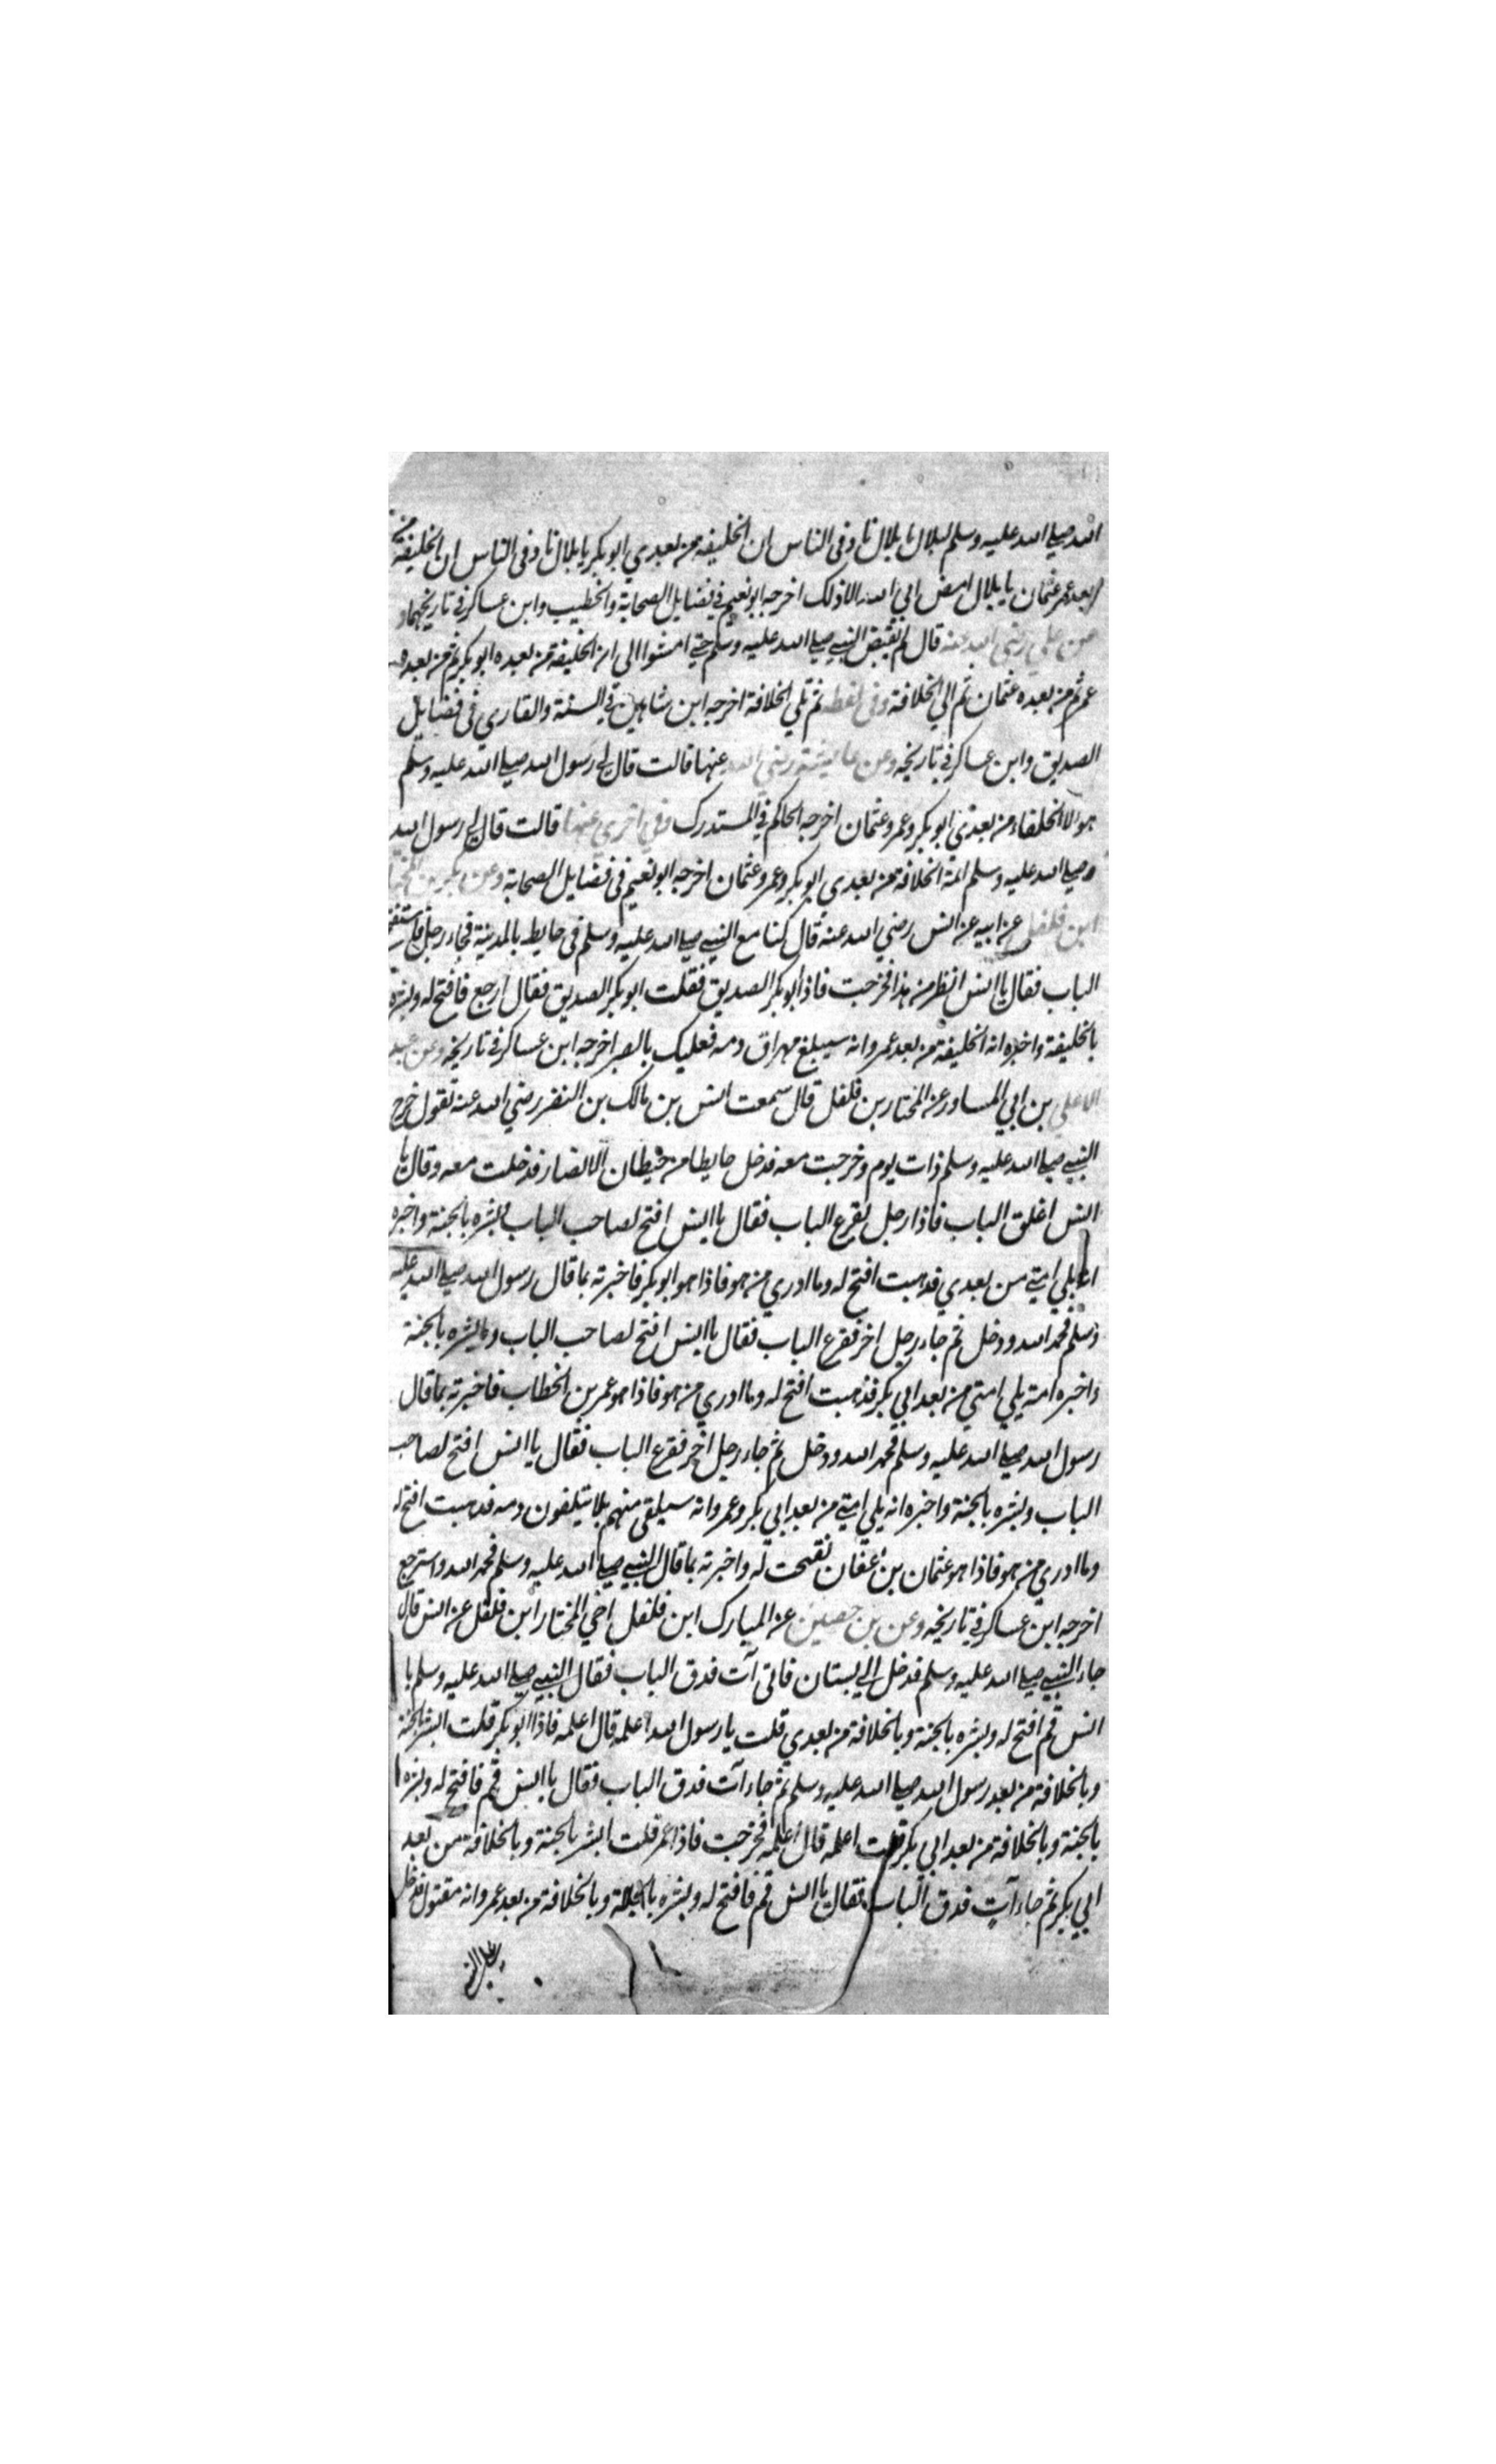 الله صلى الله عليه وسلم لبلال يا بلال ناد في الناس ان الخليفة من بعدي ابو بكر يا بلال ناد في الناس ان الخليفة من
بعد عمر عثمان يا بلال امض ابي الله الا ذلك اخرجه ابو نعيم في فضايل الصحابة والخطيب وابن عساكر في تاريخهما و
عن علي رضي الله عنه قال لم يقبض النبي صلى الله عليه وسلم حتى الى ان الخليفة من بعده ابو بكر ثم من بعده
عمر ثم من بعده عثمان ثم الي الخلافة وفي لفظ ثم تلي الخلافة اخرجه ابن شاهين في السنة والقاري في فضايل
الصديق وابن عساكر في تاريخه وعن عايشة رضي الله عنها قالت قال لي رسول الله صلى الله عليه وسلم
هولا الخلفاء من بعدي ابو بكر وعمر وعثمان اخرجه الحاكم في المستدرك وفي اخري عنها قالت قال لي رسول الله
صلى الله عليه وسلم ائمة الخلافة من بعدي ابو بكر وعمر وعثمان اخرجه ابو نعيم في فضايل الصحابة وعن بكر بن المختار
ابن فلفل عن ابيه عن انس رضي الله عنه قال كنا مع النبي صلى الله عليه وسلم في حايط بالمدينة فجاء رجل فاستفتح
الباب فقال يا انس انظر من هذا فخرجت فاذا ابو بكر الصديق فقلت ابو بكر الصديق فقال ارجع فافتح له وبشره
بالخليفة واخبره انه الخليفة من بعد عمر وانه سيبلغ مهراق دمه فعليك بالصبر اخرجه ابن عساكر في تاريخه وعن عبد
الاعلي بن ابي المساور عن المختار بن فلفل قال سمعت انس بن مالك بن النضر رضي الله عنه يقول خرج
النبي صلى الله عليه وسلم ذات يوم وخرجت معه فدخل حايطا من حيطان الانصار فدخلت معه وقال يا
انس اغلق الباب فاذا رجل يقرع الباب فقال يا انس افتح لصاحب الباب بشره بالجنة واخبره
انه يلي امتي من بعدي فذهبت افتح له وما ادري من هو فاذا هو ابو بكر فاخبرته بما قال رسول الله صلى الله عليه
وسلم فحمد الله ودخل ثم جاء رجل اخر فقرع الباب فقال يا انس افتح لصاحب الباب وبشره بالجنة
واخبره انه يلي امتي من بعد ابي بكر فذهبت افتح له وما ادري من هو فاذا هو عمر بن الخطاب فاخبرته بما قال
رسول الله صلى الله عليه وسلم فحمد الله ودخل ثم جاء رجل اخر فقرع الباب فقال يا انس افتح لصاحب
الباب وبشره بالجنة واخبره انه يلي امتي من بعد ابي بكر وعمر وانه سيلقى منهم بلا يتلفون دمه فذهبت افتح له
وما ادري من هو فاذا هو عثمان بن عفان ففتحت له واخبرته بما قال النبي صلى الله عليه وسلم فحمد الله واسترجع
اخرجه ابن عساكر في تاريخه وعن بن حصين عن المبارك ابن فلفل اخي المختار ابن فلفل عن انس قال
جاء النبي صلى الله عليه وسلم فدخل الي بستان فاتى آت فدق الباب فقال النبي صلى الله عليه وسلم يا
انس قم افتح له وبشره بالجنة وبالخلافة من بعدي قلت يا رسول الله اعلمه قال اعلمه فاذا ابو بكر قلت ابشر بالجنة
وبالخلافة من بعد رسول الله صلى الله عليه وسلم ثم جاء آت فدق الباب فقال يا انس قم فافتح له وبشره
بالجنة وبالخلافة من بعد ابي بكر قلت اعلمه قال اعلمه فخرجت فاذا عمر قلت ابشر بالجنة وبالخلافة من بعد
ابي بكر ثم جاء آت فدق الباب فقال يا انس قم فافتح له وبشره بالجنة وبالخلافة من بعد عمر وانه مقتول فدخل